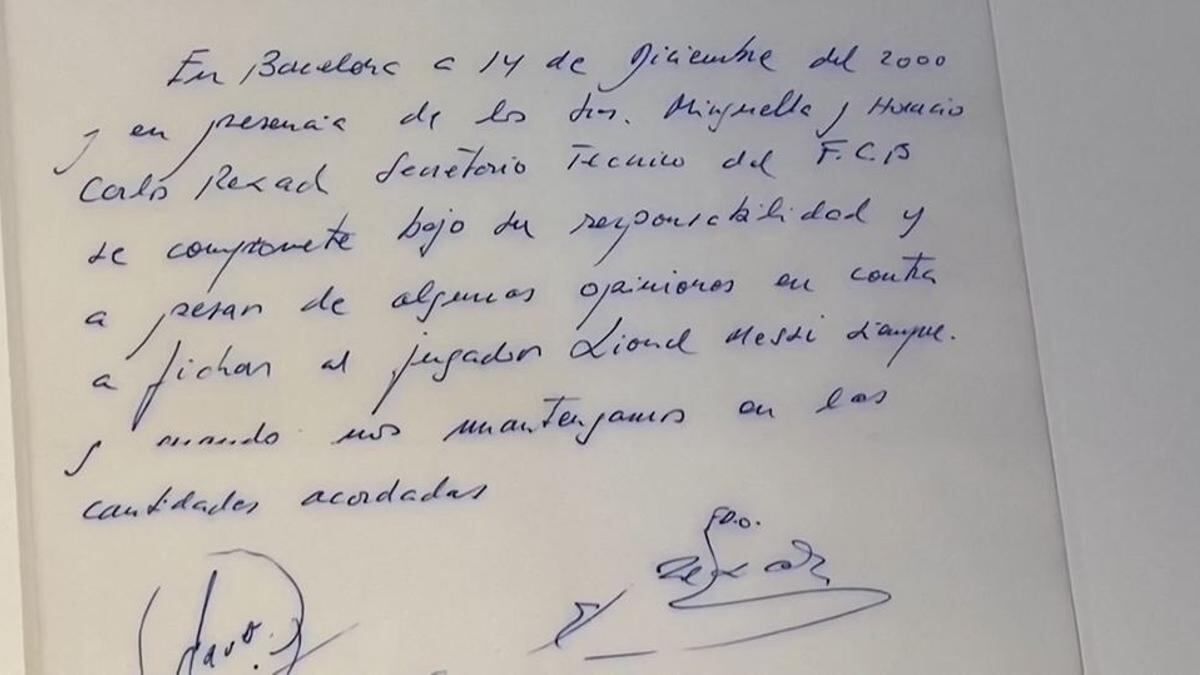 En Barcelona a 14 de Diciembre del 2000
y en presencia de los Srs. Minguella y Horacio
Carlos Rexach Secretario Tecnico del F.C.B
se compromete bajo su responsabilidad y
a pesar de algunas opiniones en contra
a fichar al jugador Lionel Messi siempre
y cuando nos mantengamos en las
cantidades acordadas
Fdo.
Rexach